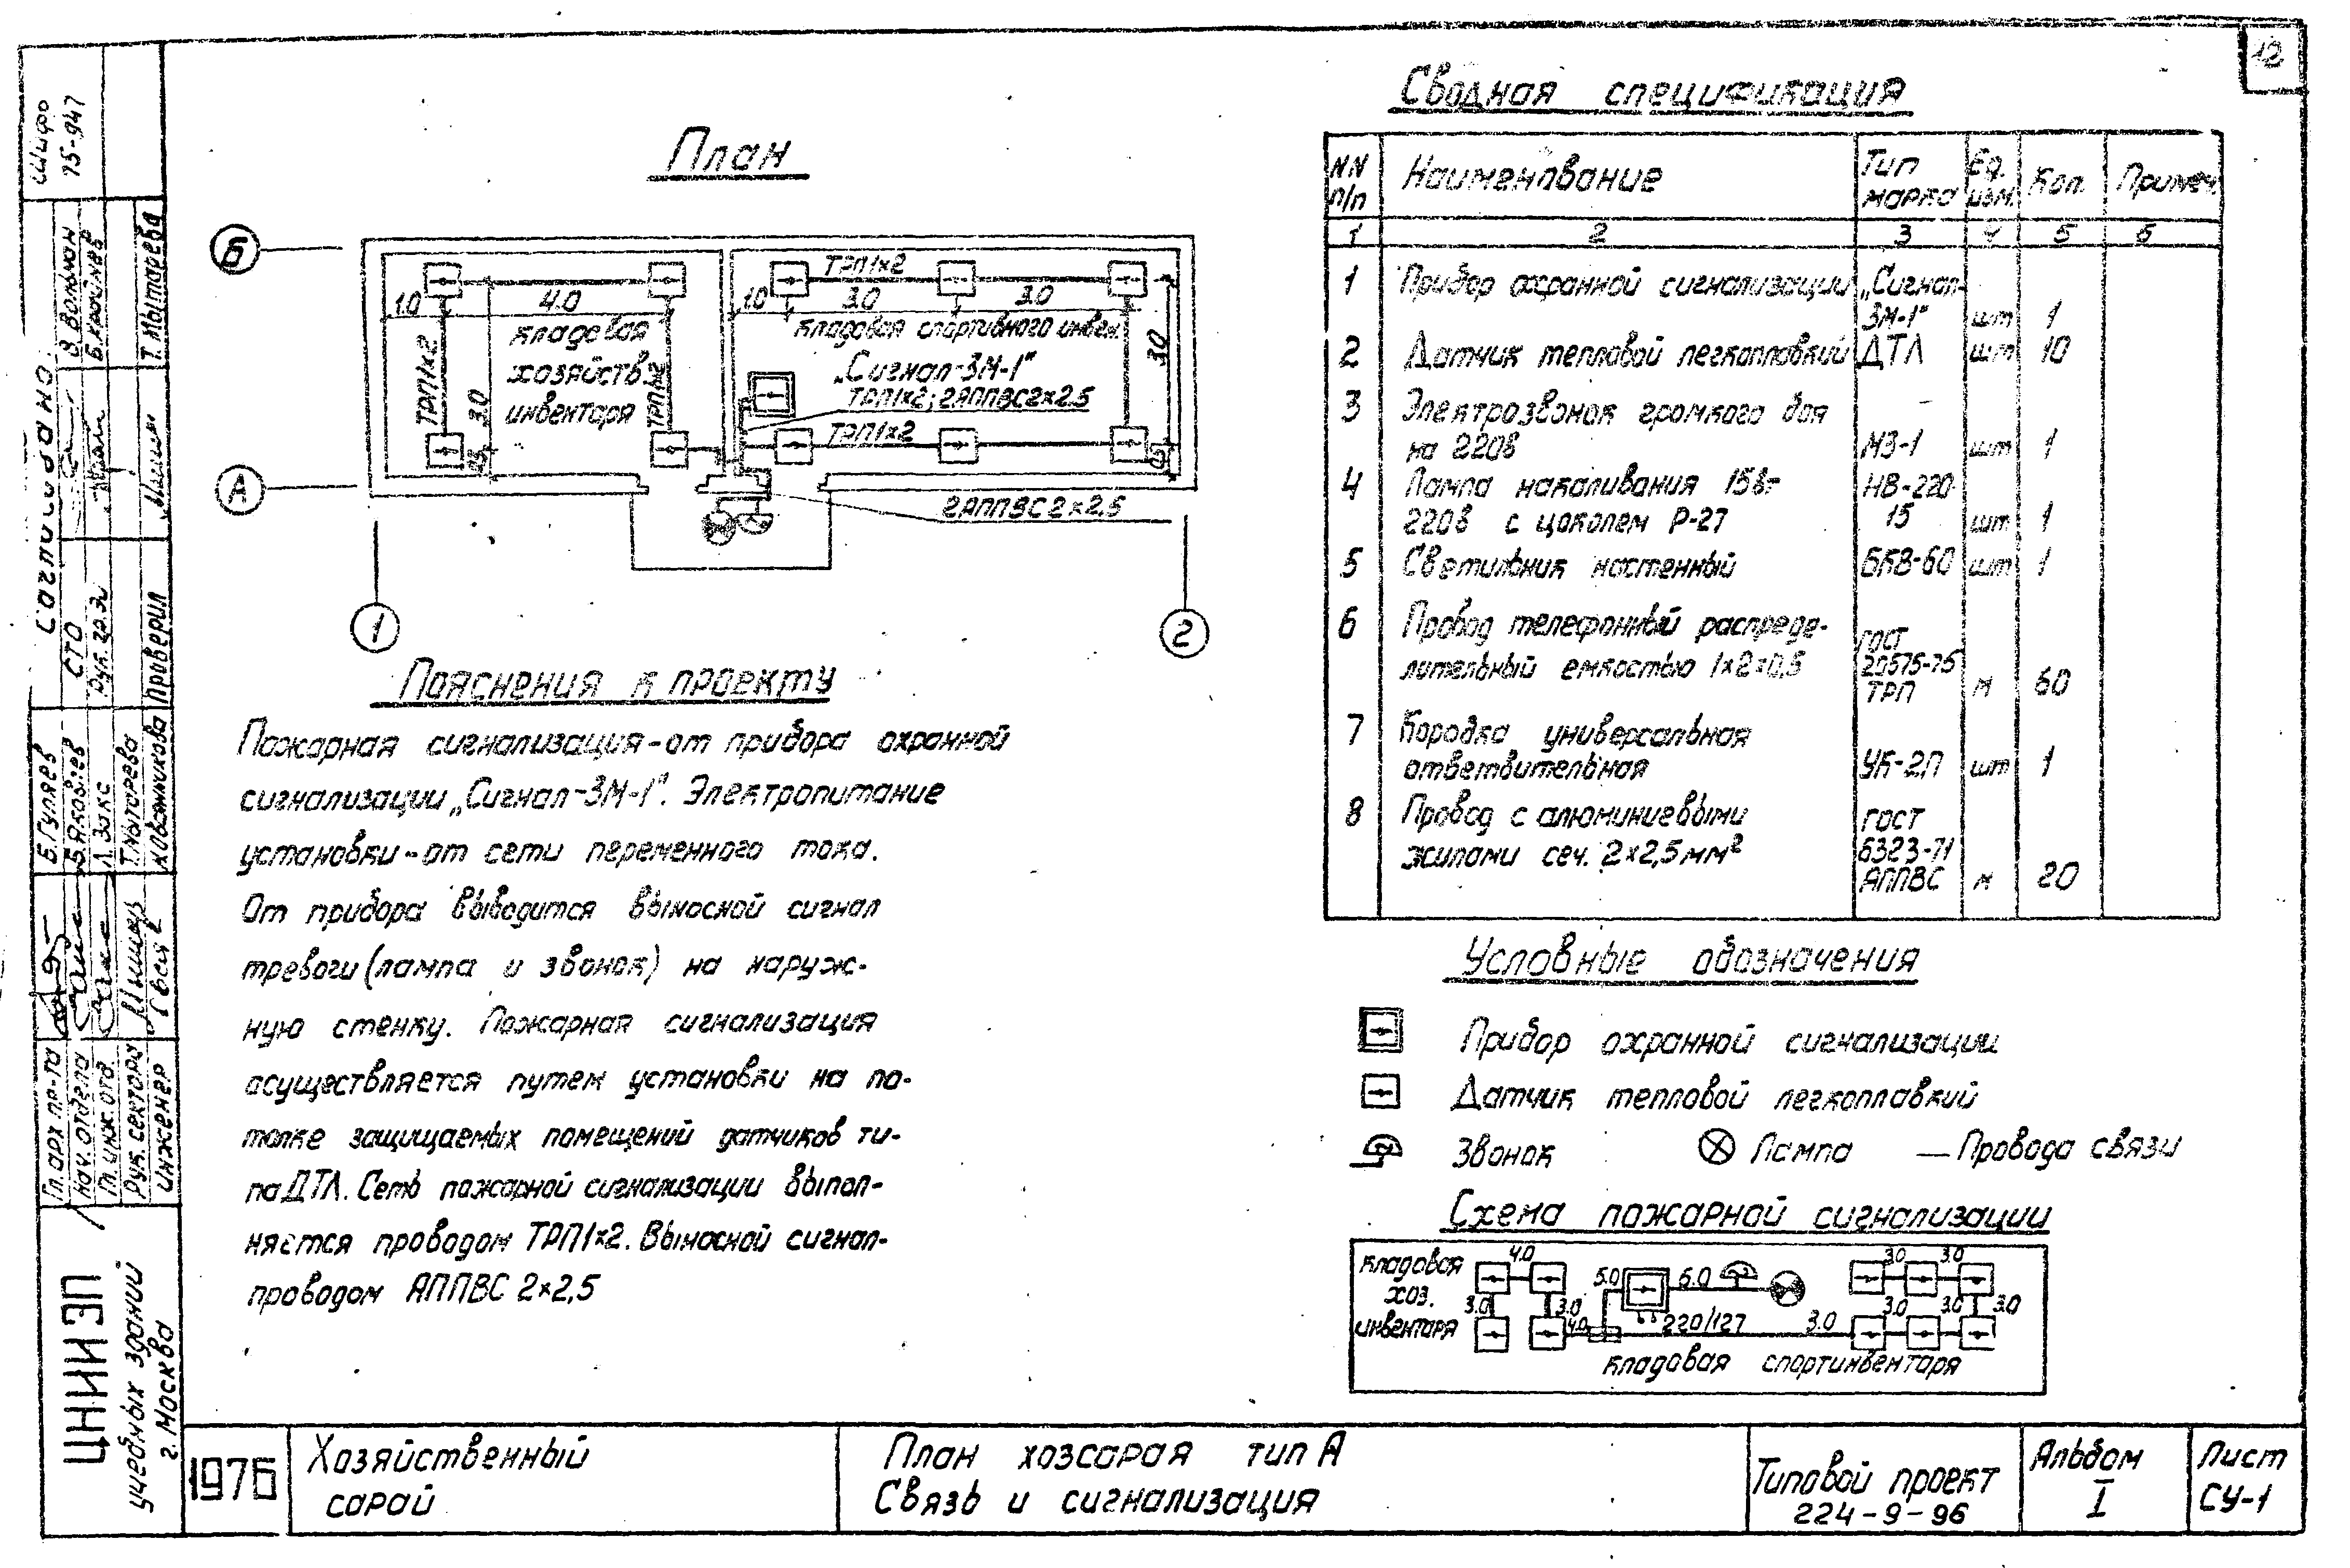 12
Шифр
75-947
Согласовано:
В. Волкон
СТО
Рук. гр. Эл
Т. Мытарева
Проверил
Б. Гуляев
Б. Яковлев
Л. Закс
Т. Мытарева
Гл. арх. пр-та
Нач. отдела
Гл. инж. отд.
Рук. сектора
Инженер
ЦНИИЭП
учебных зданий
г. Москва
План
Б
А
1
2
ТРП1×2
1.0
4.0
1.0
3.0
3.0
кладовая
хозяйств.
инвентаря
кладовая спортивного инвен.
„Сигнал-3М-1"
ТРП1×2; 2АППВС2×2.5
ТРП1×2
ТРП1×2
ТРП1×2
3.0
3.0
2АППВС2×2.5
Пояснения к проекту
Пожарная сигнализация-от прибора охранной
сигнализации „Сигнал-3М-1". Электропитание
установки-от сети переменного тока.
От прибора выводится выносной сигнал
тревоги (лампа и звонок) на наруж-
ную стенку. Пожарная сигнализация
осуществляется путем установки на по-
толке защищаемых помещений датчиков ти-
па ДТЛ. Сеть пожарной сигнализации выпол-
няется проводом ТРП1×2. Выносной сигнал-
проводом АППВС 2×2,5
Сводная спецификация
NN п/п Наименование Тип марка Ед. изм. Кол. Примеч.
1 2 3 4 5 6
1 Прибор охранной сигнализации „Сигнал-
3М-1" шт 1
2 Датчик тепловой легкоплавкий ДТЛ шт 10
3 Электрозвонок громкого боя
на 220в МЗ-1 шт 1
4 Лампа накаливания 15вт НВ-220
220в с цоколем Р-27 15 шт 1
5 Светильник настенный БКВ-60 шт 1
6 Провод телефонный распреде- ГОСТ
лительный емкостью 1×2×0,5 20575-75
ТРП м 60
7 Коробка универсальная
ответвительная УК-2П шт 1
8 Провод с алюминиевыми ГОСТ
жилами сеч. 2×2,5мм² 6323-71
АППВС м 20
Условные обозначения
Прибор охранной сигнализации
Датчик тепловой легкоплавкий
Звонок Лампа — Провода связи
Схема пожарной сигнализации
кладовая
хоз.
инвентаря
4.0
3.0
3.0
4.0
5.0
6.0
220/127
3.0
3.0 3.0
3.0 3.0 3.0
кладовая спортинвентаря
1976
Хозяйственный
сарай
План хозсарая тип А
Связь и сигнализация
Типовой проект
224-9-96
Альбом
I
Лист
СУ-1